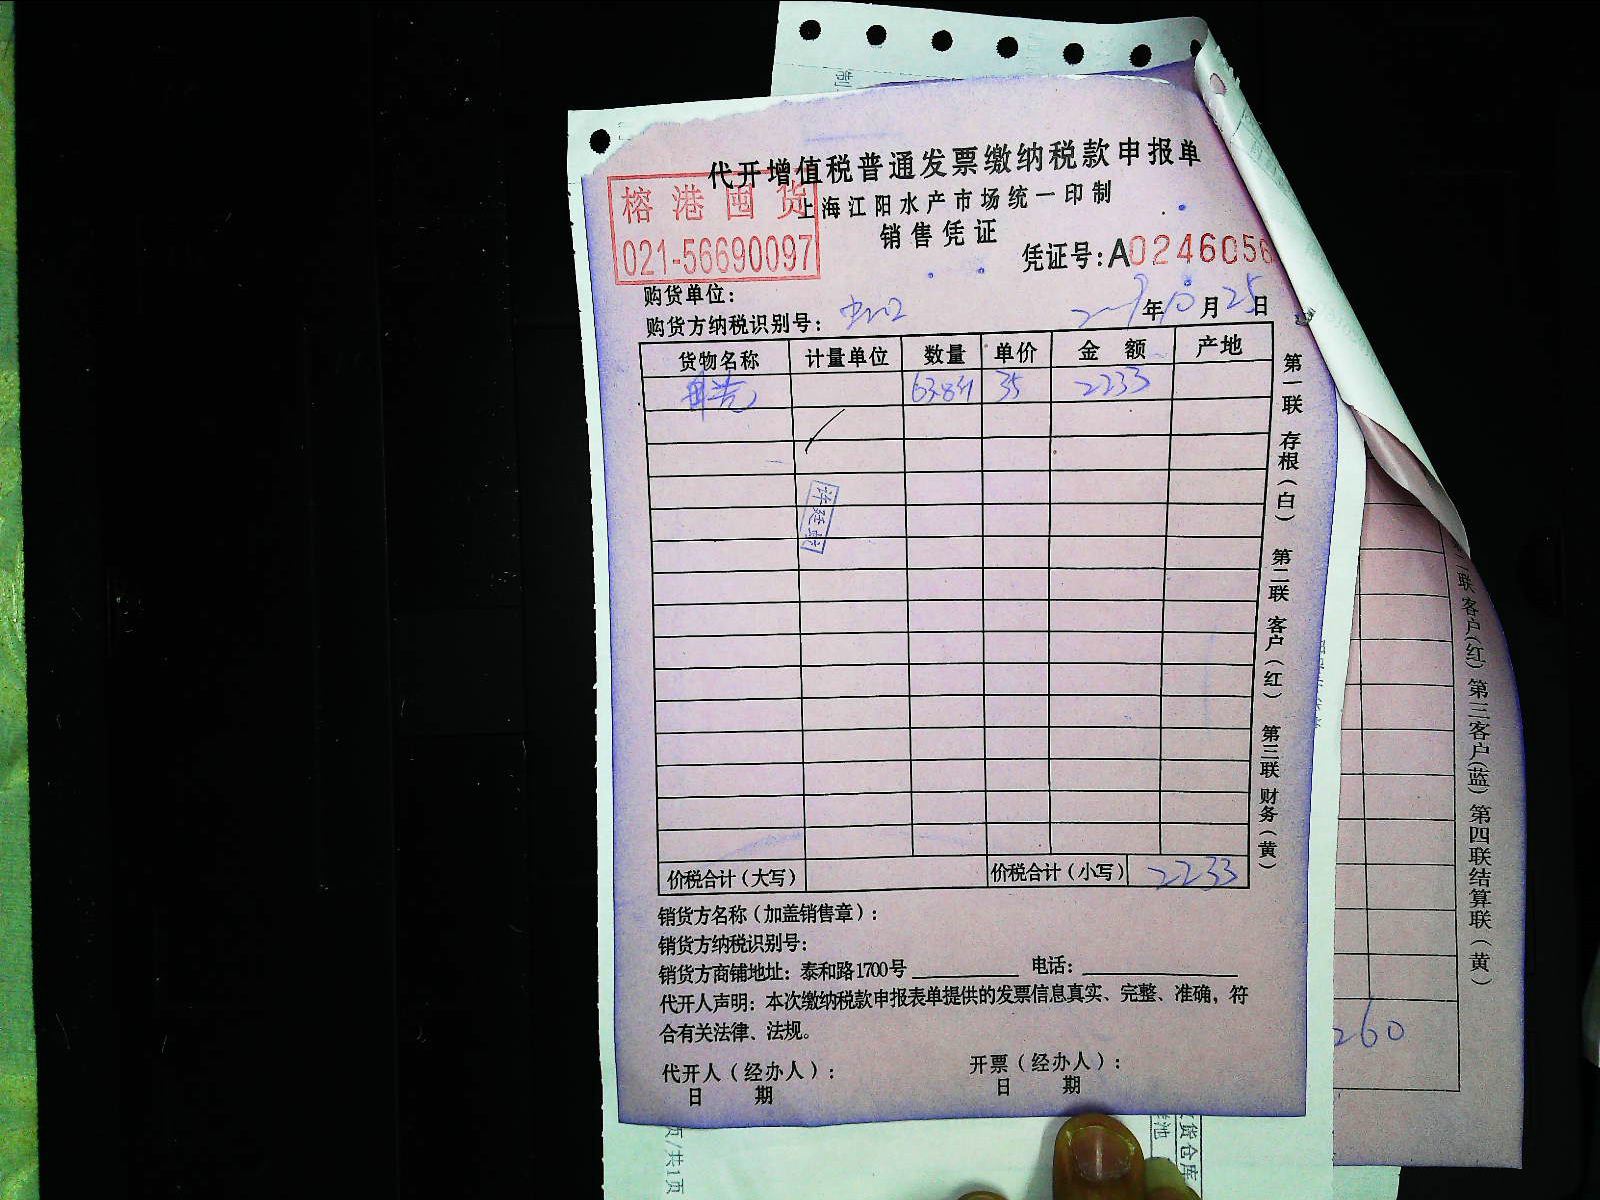 代开增值税普通发票缴纳税款申报单
榕港囤货
上海江阳水产市场统一印制
021-56690097
销售凭证
凭证号:A0246056
购货单位:
年10月25日
购货方纳税识别号:
货物名称 计量单位 数量 单价 金额 产地
63.8斤 35 2233
价税合计(大写) 价税合计(小写) 2233
销货方名称(加盖销售章):
销货方纳税识别号:
销货方商铺地址: 泰和路1700号 电话:
代开人声明: 本次缴纳税款申报表单提供的发票信息真实、完整、准确, 符
合有关法律、法规。
代开人(经办人): 开票(经办人):
日期 日期
第一联 存根(白) 第二联 客户(红) 第三联 财务(黄)
联客户(红) 第三客户(蓝) 第四联结算联(黄)
260
货仓库
页/共1页